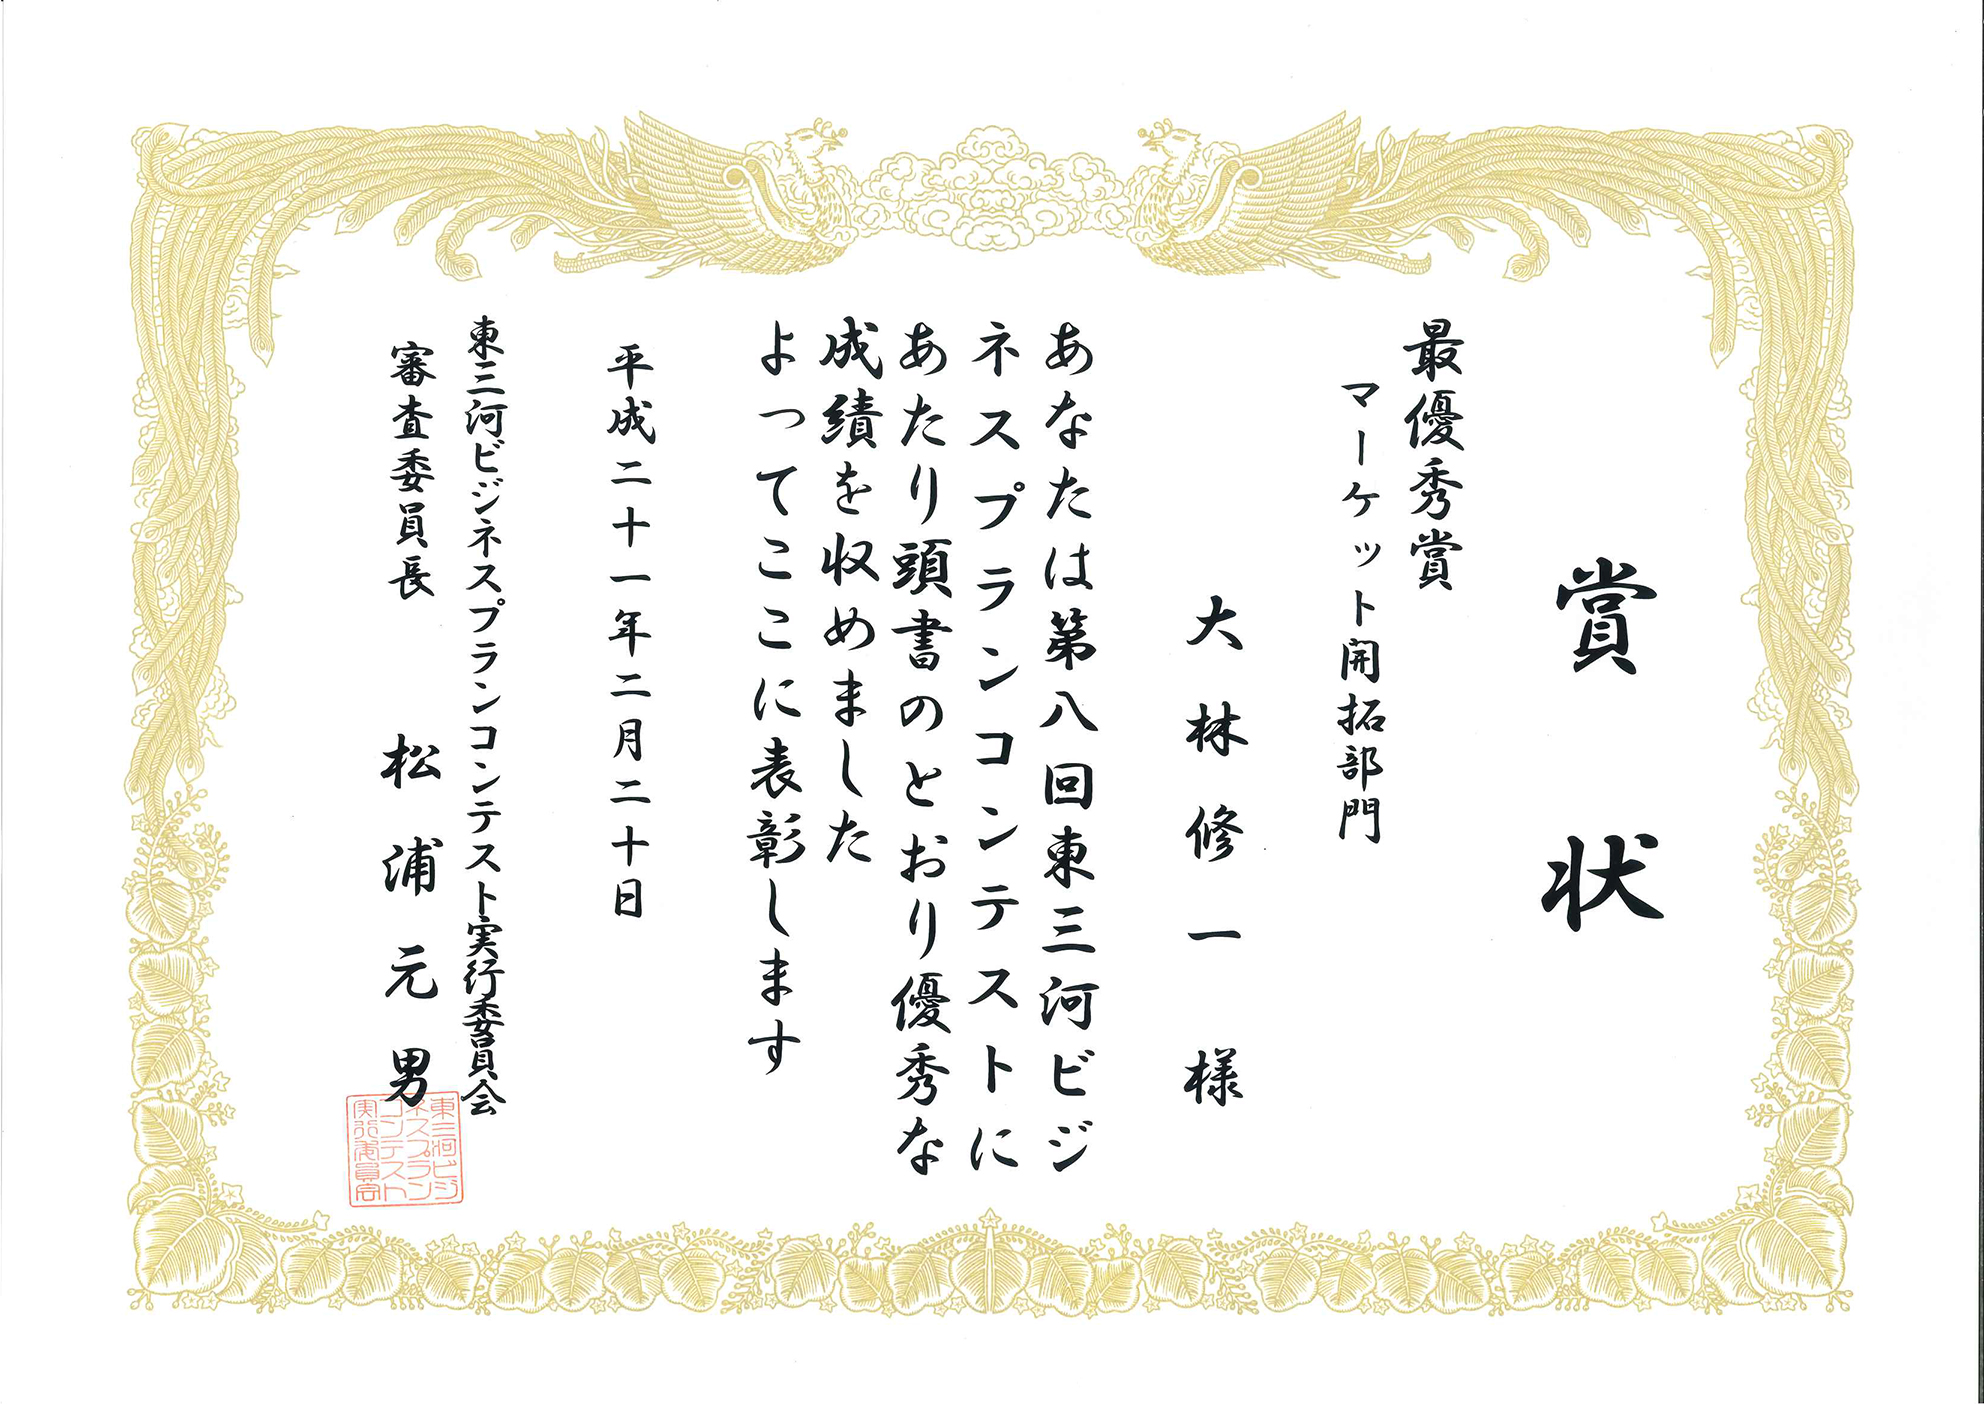 賞状
最優秀賞
マーケット開拓部門
大林修一様
あなたは第八回東三河ビジ
ネスプランコンテストに
あたり頭書のとおり優秀な
成績を収めました
よってここに表彰します
平成二十一年二月二十日
東三河ビジネスプランコンテスト実行委員会
審査委員長 松浦元男
東三河ビジ
ネスプラン
コンテスト
実行委員会